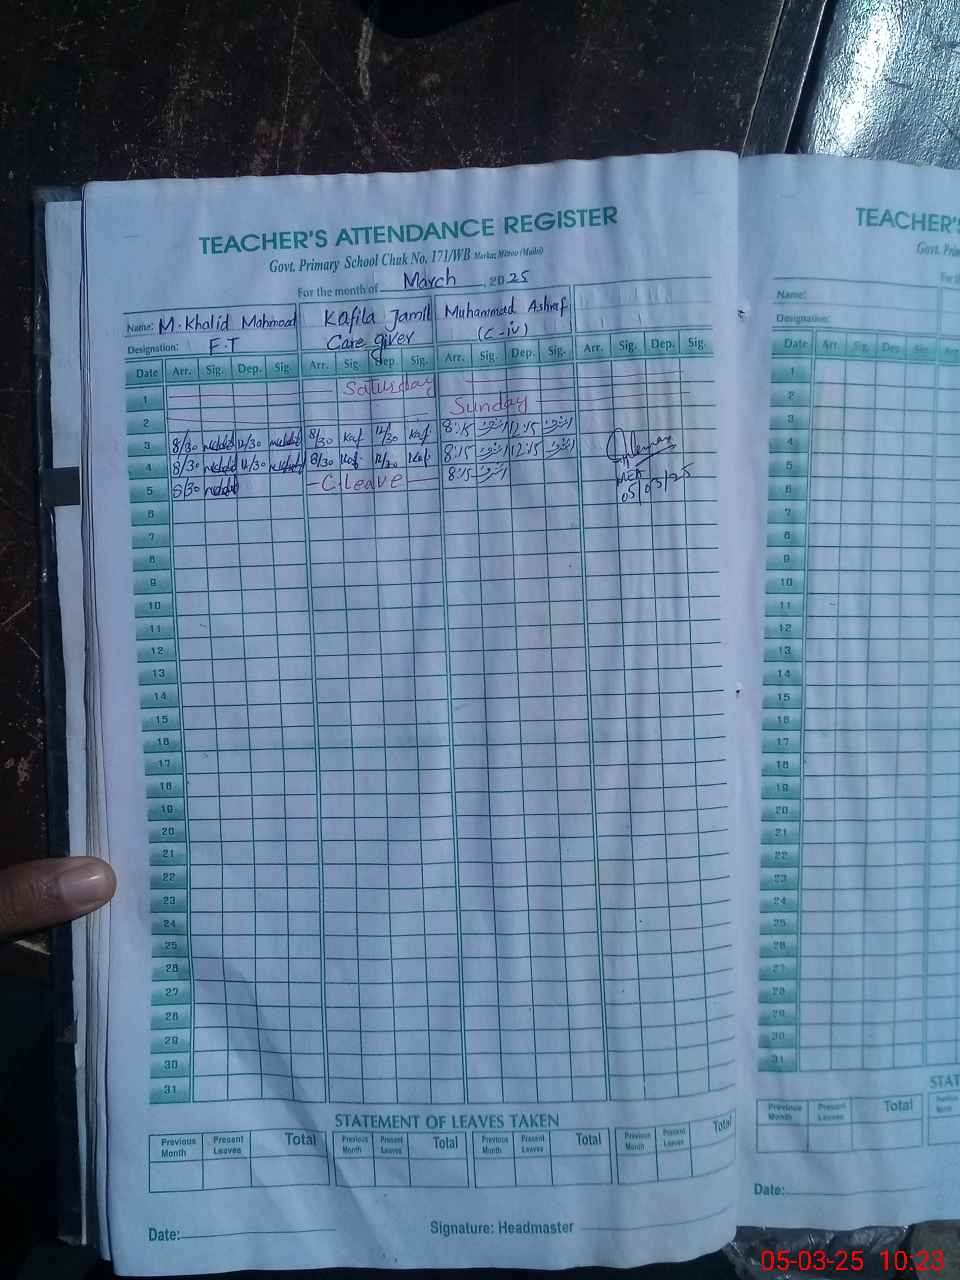 TEACHER'S ATTENDANCE REGISTER
Govt. Primary School Chak No. 171/WB Markaz Mitroo (Mailsi)
For the month of March, 2025
Name: M. Khalid Mahmood Kafila Jamil Muhammad Ashraf
Designation: F.T Care giver (C-iv)
Date Arr. Sig. Dep. Sig. Arr. Sig. Dep. Sig. Arr. Sig. Dep. Sig. Arr. Sig. Dep. Sig.
1 Saturday
2 Sunday
3 8/30 12/30 8/30 Kaf 12/30 Kaf 8:15 اشرف 12:15 اشرف
4 8/30 12/30 8/30 Kaf 12/30 Kaf 8:15 اشرف 12:15 اشرف
5 8/30 C.Leave 8:15 اشرف
MEA
05/03/25
6
7
8
9
10
11
12
13
14
15
16
17
18
19
20
21
22
23
24
25
26
27
28
29
30
31
STATEMENT OF LEAVES TAKEN
Previous Month Present Leaves Total Previous Month Present Leaves Total Previous Month Present Leaves Total Previous Month Present Leaves Total
Date: Signature: Headmaster
TEACHER'S
Govt. Prim
For th
Name:
Designation:
Date Arr. Sig. Dep. Sig.
1
2
3
4
5
6
7
8
9
10
11
12
13
14
15
16
17
18
19
20
21
22
23
24
25
26
27
28
29
30
31
STAT
Previous Month Present Leaves Total
Date:
05-03-25 10:23